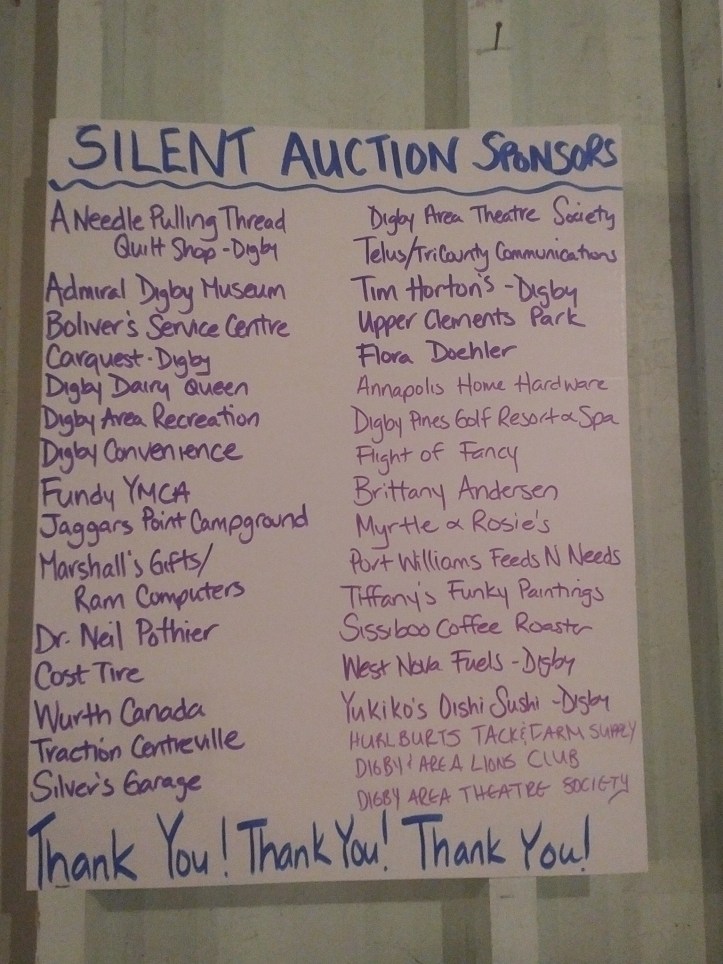 SILENT AUCTION SPONSORS
A Needle Pulling Thread
Quilt Shop - Digby
Admiral Digby Museum
Boliver's Service Centre
Carquest - Digby
Digby Dairy Queen
Digby Area Recreation
Digby Convenience
Fundy YMCA
Jaggars Point Campground
Marshall's Gifts/
Ram Computers
Dr. Neil Pothier
Cost Tire
Wurth Canada
Traction Centreville
Silver's Garage
Digby Area Theatre Society
Telus/TriCounty Communications
Tim Horton's - Digby
Upper Clements Park
Flora Doehler
Annapolis Home Hardware
Digby Pines Golf Resort & Spa
Flight of Fancy
Brittany Andersen
Myrtle & Rosie's
Port Williams Feeds N Needs
Tiffany's Funky Paintings
Sissiboo Coffee Roaster
West Nova Fuels - Digby
Yukiko's Oishi Sushi - Digby
HURLBURTS TACK & FARM SUPPLY
DIGBY & AREA LIONS CLUB
DIGBY AREA THEATRE SOCIETY
Thank You! Thank You! Thank You!